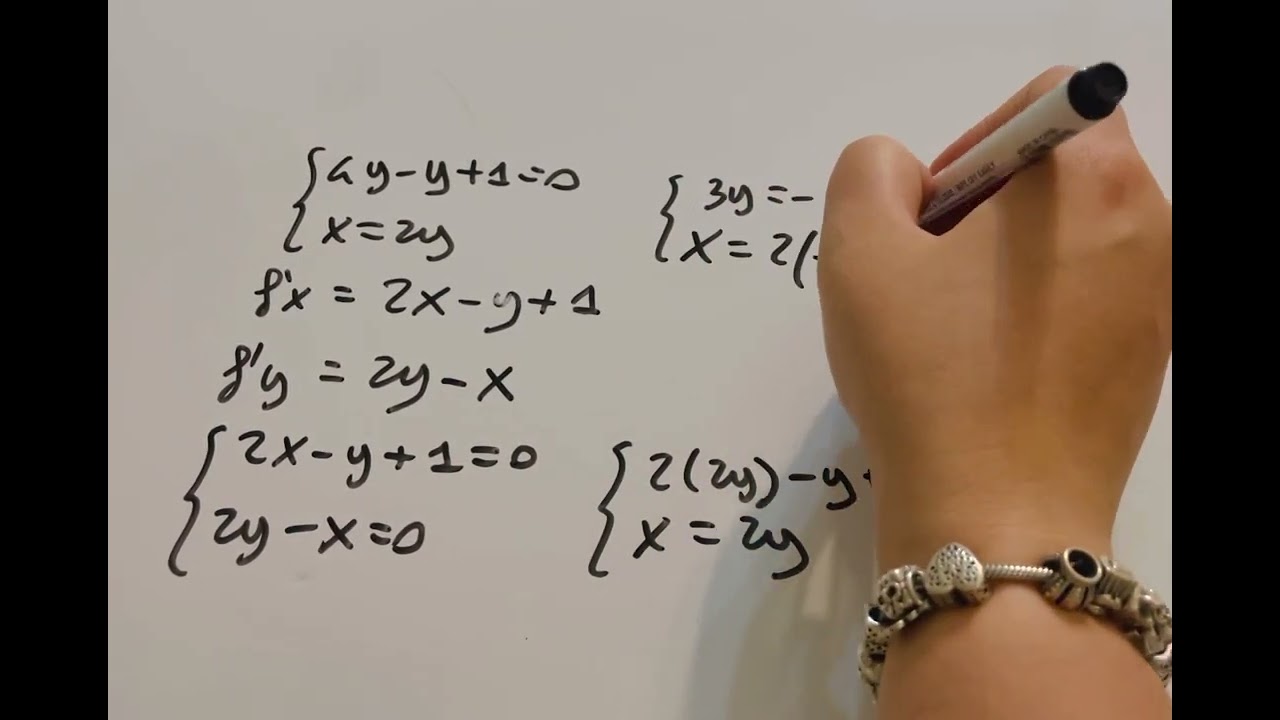 4y-y+1=0
x=2y
3y=-
x=2(
f'x = 2x-y+1
f'y = 2y-x
2x-y+1=0
2y-x=0
2(2y)-y+
x=2y